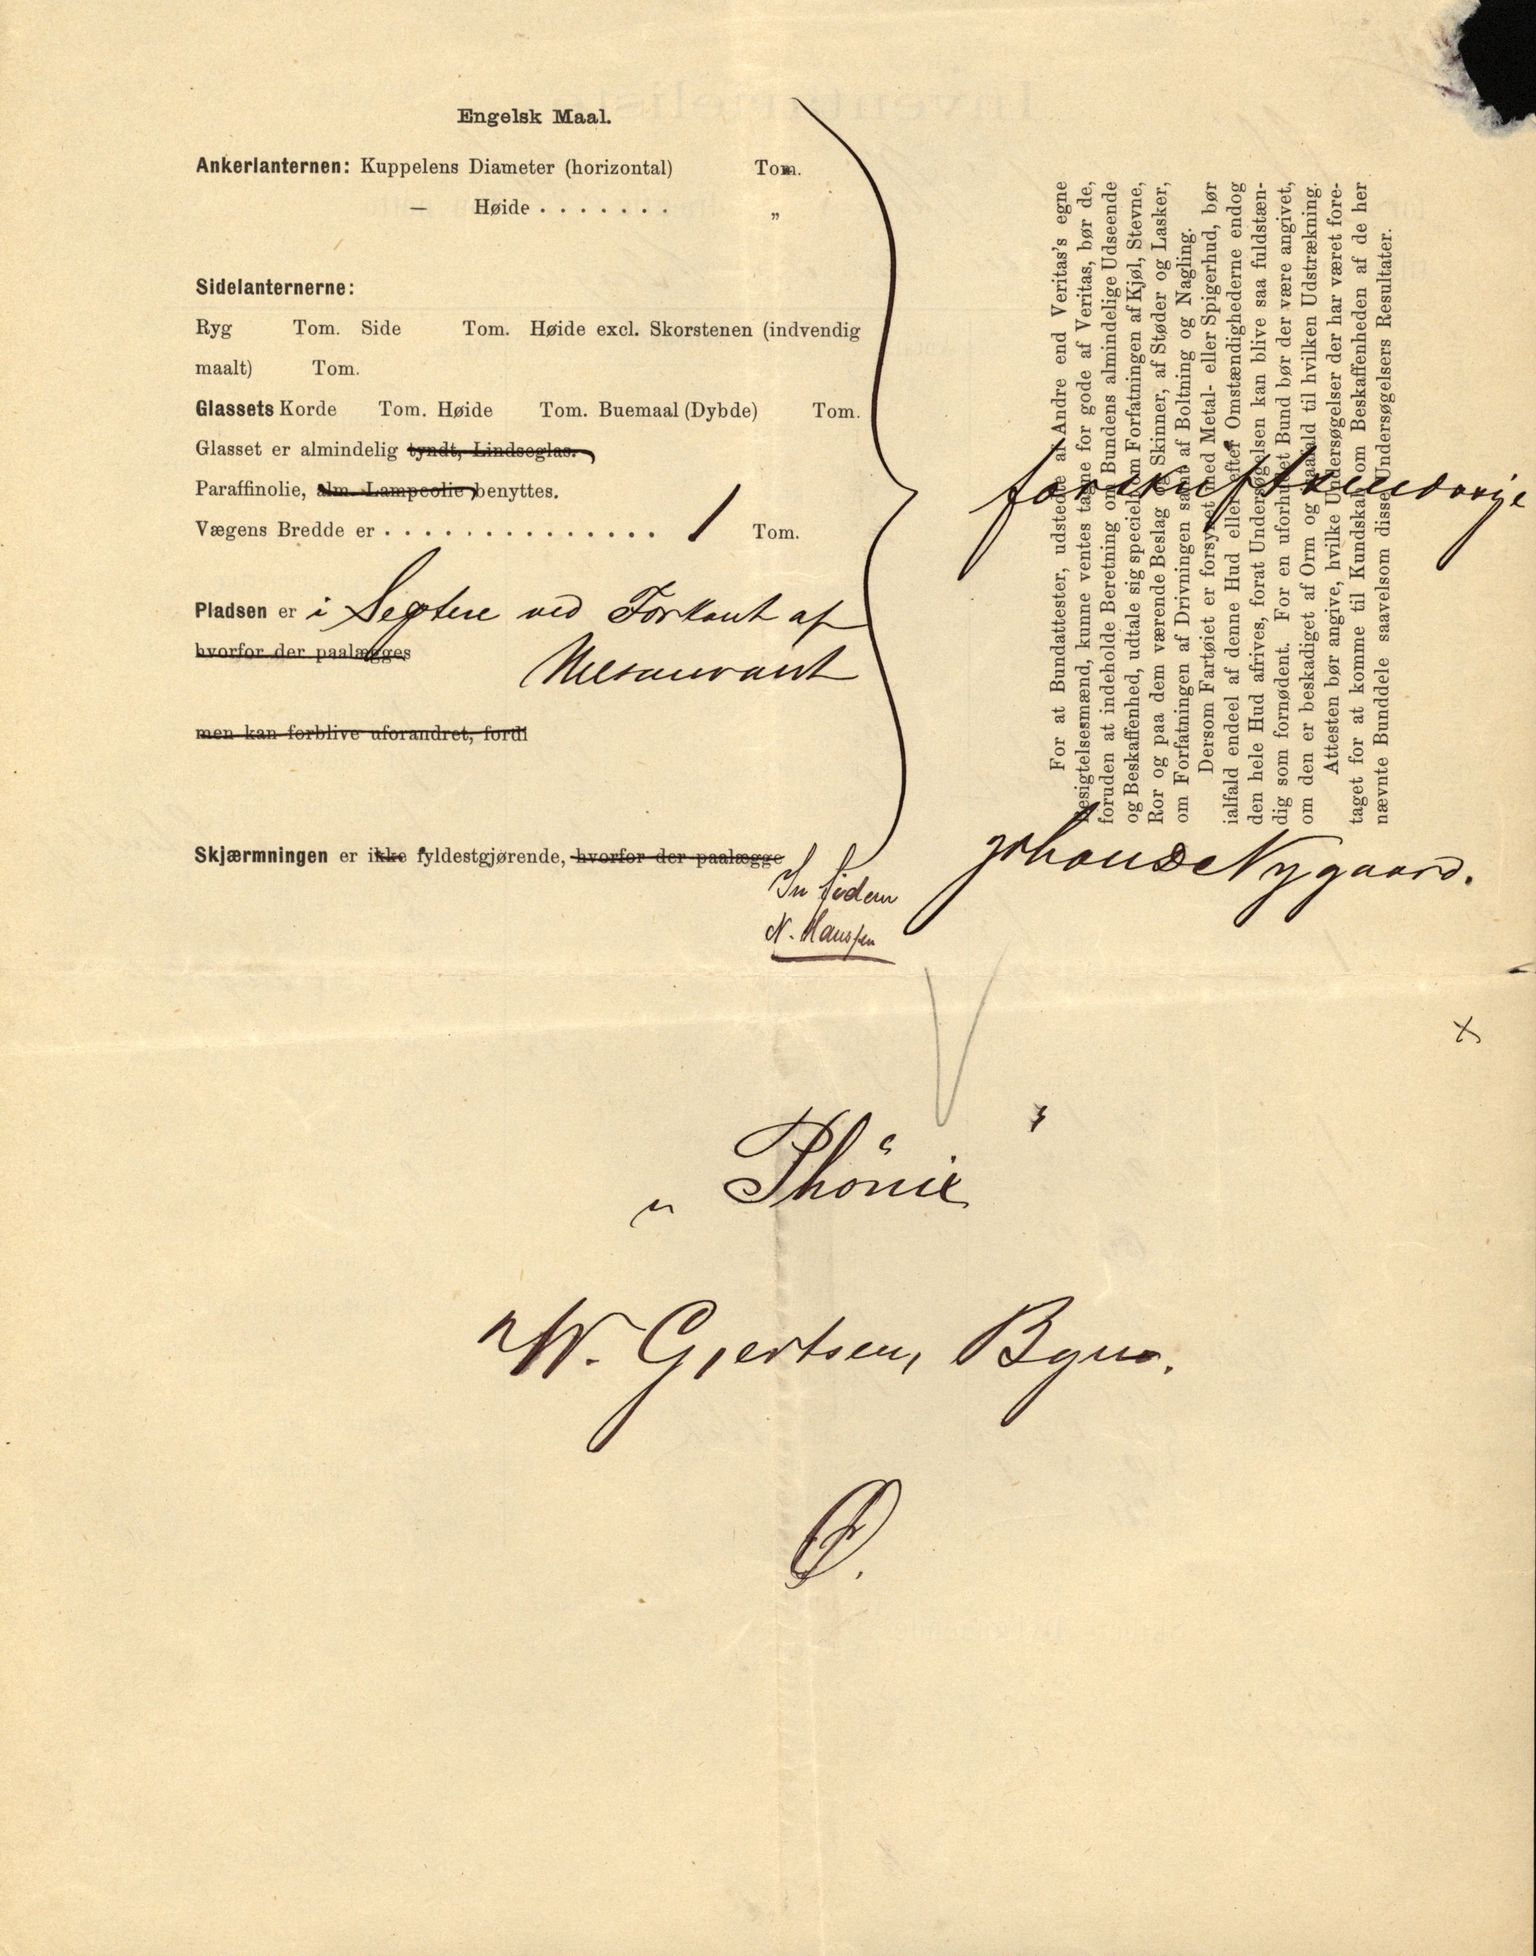 Engelsk Maal.
Ankerlanternen: Kuppelens Diameter (horizontal) Tom.
— Høide . . . . . . . "
Sidelanternerne:
Ryg Tom. Side Tom. Høide excl. Skorstenen (indvendig
maalt) Tom.
Glassets Korde Tom. Høide Tom. Buemaal (Dybde) Tom.
Glasset er almindelig tyndt, Lindseglas.
Paraffinolie, alm. Lampeolie, benyttes.
Vægens Bredde er . . . . . . . . . . . . . . . 1 Tom.
Pladsen er i Septere ved Forkant af
hvorfor der paalægges
men kan forblive uforandret, fordi
Skjærmningen er ikke fyldestgjørende, hvorfor der paalægge
In fidem
N. Hanssen
For at Bundattester, udstedte af Andre end Veritas's egne
Besigtelsesmænd, kunne ventes tagne for gode af Veritas, bør de,
foruden at indeholde Beretning om Bundens almindelige Udseende
og Beskaffenhed, udtale sig specielt om Forfatningen af Kjøl, Stevne,
Ror og paa dem værende Beslag og Skinner, af Støder og Lasker,
om Forfatningen af Drivningen samt af Boltning og Nagling.
Dersom Fartøiet er forsynet med Metal- eller Spigerhud, bør
ialfald endeel af denne Hud eller efter Omstændighederne endog
den hele Hud afrives, forat Undersøgelsen kan blive saa fuldstæn-
dig som fornødent. For en uforhudet Bund bør der være angivet,
om den er beskadiget af Orm og isaafald til hvilken Udstrækning.
Attesten bør angive, hvilke Undersøgelser der har været fore-
taget for at komme til Kundskab om Beskaffenheden af de her
nævnte Bunddele saavelsom disse Undersøgelsers Resultater.
Johan D Nygaard.
„Phönix"
W. Gjertsen,